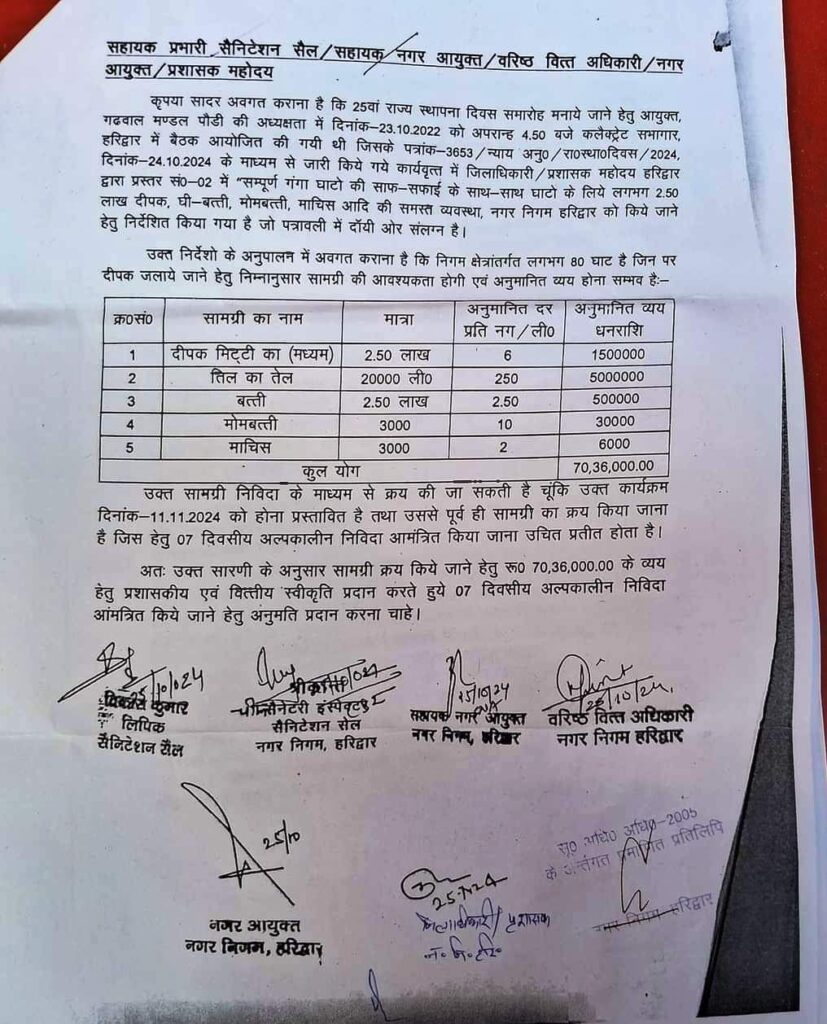 सहायक प्रभारी सैनिटेशन सैल/सहायक नगर आयुक्त/वरिष्ठ वित्त अधिकारी/नगर
आयुक्त/प्रशासक महोदय
कृपया सादर अवगत कराना है कि 25वां राज्य स्थापना दिवस समारोह मनाये जाने हेतु आयुक्त,
गढवाल मण्डल पौडी की अध्यक्षता में दिनांक-23.10.2022 को अपरान्ह 4.50 बजे कलैक्ट्रेट सभागार,
हरिद्वार में बैठक आयोजित की गयी थी जिसके पत्रांक-3653/न्याय अनु0/रा0स्था0दिवस/2024,
दिनांक-24.10.2024 के माध्यम से जारी किये गये कार्यवृत्त में जिलाधिकारी/प्रशासक महोदय हरिद्वार
द्वारा प्रस्तर सं0-02 में "सम्पूर्ण गंगा घाटो की साफ-सफाई के साथ-साथ घाटो के लिये लगभग 2.50
लाख दीपक, घी-बत्ती, मोमबत्ती, माचिस आदि की समस्त व्यवस्था, नगर निगम हरिद्वार को किये जाने
हेतु निर्देशित किया गया है जो पत्रावली में दॉयी ओर संलग्न है।
उक्त निर्देशो के अनुपालन में अवगत कराना है कि निगम क्षेत्रांतर्गत लगभग 80 घाट है जिन पर
दीपक जलाये जाने हेतु निम्नानुसार सामग्री की आवश्यकता होगी एवं अनुमानित व्यय होना सम्भव हैः-
क्र0सं0 सामग्री का नाम मात्रा अनुमानित दर प्रति नग/ली0 अनुमानित व्यय धनराशि
1 दीपक मिट्टी का (मध्यम) 2.50 लाख 6 1500000
2 तिल का तेल 20000 ली0 250 5000000
3 बत्ती 2.50 लाख 2.50 500000
4 मोमबत्ती 3000 10 30000
5 माचिस 3000 2 6000
कुल योग 70,36,000.00
उक्त सामग्री निविदा के माध्यम से क्रय की जा सकती है चूंकि उक्त कार्यक्रम
दिनांक-11.11.2024 को होना प्रस्तावित है तथा उससे पूर्व ही सामग्री का क्रय किया जाना
है जिस हेतु 07 दिवसीय अल्पकालीन निविदा आमंत्रित किया जाना उचित प्रतीत होता है।
अतः उक्त सारणी के अनुसार सामग्री क्रय किये जाने हेतु रू0 70,36,000.00 के व्यय
हेतु प्रशासकीय एवं वित्तीय स्वीकृति प्रदान करते हुये 07 दिवसीय अल्पकालीन निविदा
आंमत्रित किये जाने हेतु अनुमति प्रदान करना चाहे।
25/10/24
कुमार
लिपिक
सैनिटेशन सैल
सैनेटरी इंस्पेक्टर
सैनिटेशन सेल
नगर निगम, हरिद्वार
25/10/24
सहायक नगर आयुक्त
नगर निगम, हरिद्वार
25/10/24
वरिष्ठ वित्त अधिकारी
नगर निगम हरिद्वार
25/10
नगर आयुक्त
नगर निगम, हरिद्वार
जिलाधिकारी/प्रशासक
न० नि० हरि०
सू0 अधि0 अधि0-2005
के अन्तर्गत प्रमाणित प्रतिलिपि
नगर निगम हरिद्वार